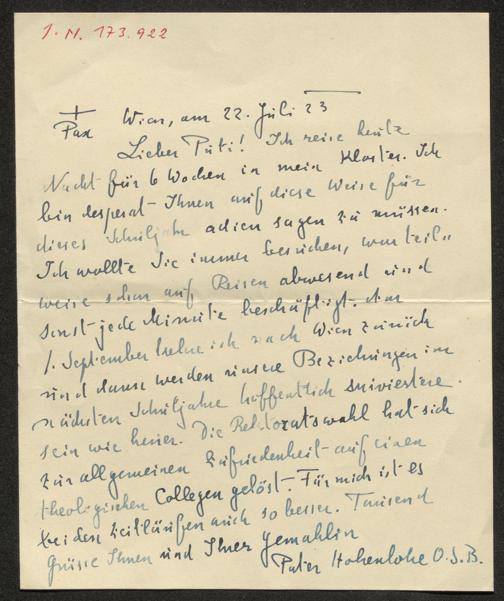 J. N. 173.922
+
Pax
Wien, am 22. Juli 23
Lieber Püti! Ich reise heute
Nacht für 6 Wochen in mein Kloster. Ich
bin desperat Ihnen auf diese Weise für
dieses Schuljahr adieu sagen zu müssen.
Ich wollte Sie immer besuchen, war teil-
weise schon auf Reisen abwesend und
sonst jede Minute beschäftigt. Am
1. September kehre ich nach Wien zurück
und dann werden unsere Beziehungen im
nächsten Schuljahre hoffentlich suiviertere
sein wie heuer. Die Rektoratswahl hat sich
zur allgemeinen Zufriedenheit auf einen
theologischen Collegen gelöst. Für mich ist es
bei den Zeitläufen auch so besser. Tausend
Grüsse Ihnen und Ihrer Gemahlin
Pater Hohenlohe O.S.B.